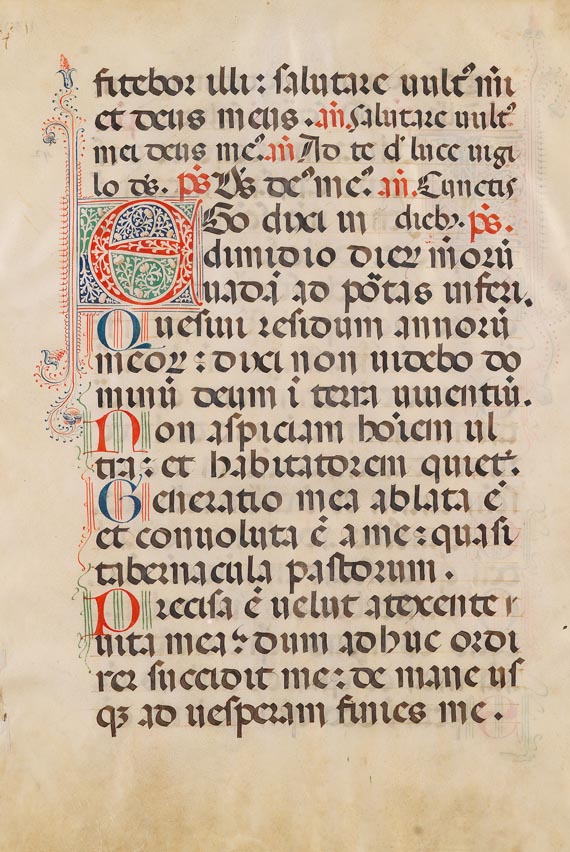 fitebor illi : salutare uult᷒ mi
et deus meus . añ. Salutare uult᷒
mei deus me᷒. añ Ad te d' luce uigi
lo ds̄. p̄s Ds̄ de᷒ me᷒. añ. Cunctis
EGo dixi in dieb₃. p̄s.
dimidio dieꝝ meorū
uadā ad pōtas inferi.
Quesiui residuum annorū
meoꝝ : dixi non uidebo do
minū deum ī terra uiuentiū.
Non aspiciam hoīem ul
tra : et habitatorem quiet᷒.
Generatio mea ablata ē
et conuoluta ē a me : quasi
tabernacula pastorum .
Precisa ē uelut atexente
uita mea : dum adhuc ordi
rer succidit me : de mane us
qꝫ ad uesperam finies me .